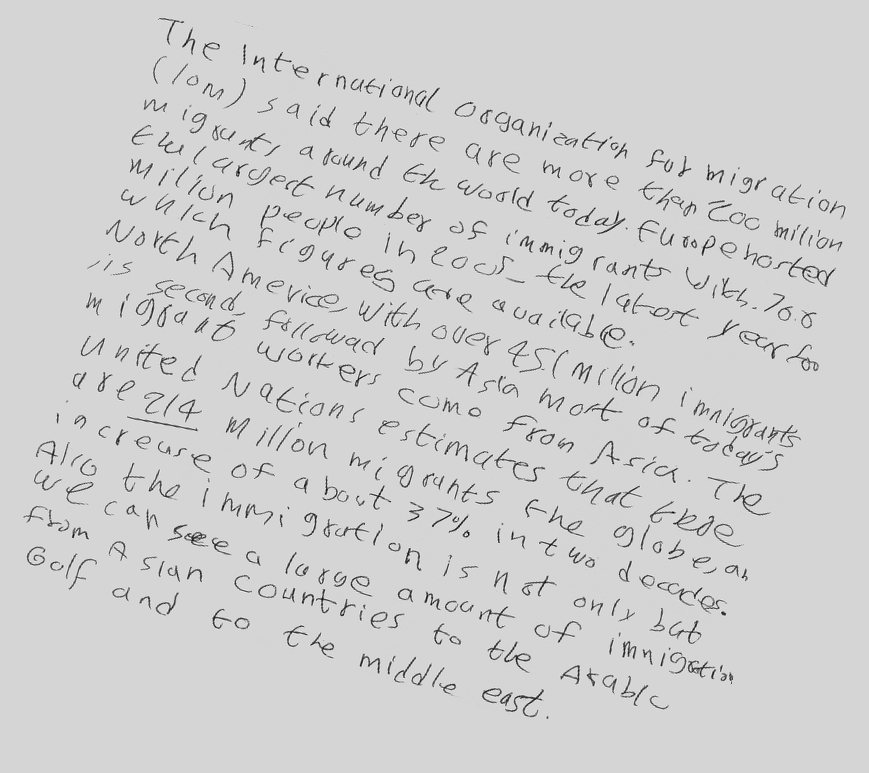 The International Organization for migration
(IOM) said there are more than 200 milion
migrants around the world today. Europe hosted
the largest number of immigrants with 70.6
milion people in 2005, the latest year for
which figures are available.
North America, with over 45.1 milion immigrants
is second, followed by Asia most of today's
migrant workers come from Asia. The
United Nations estimates that
are 214 Millon migrants the globe, an
increase of about 37% in two decades.
Also the immigration is not only but
we can see a large amount of immigration
from Asian countries to the Arabic
Golf and to the middle east.